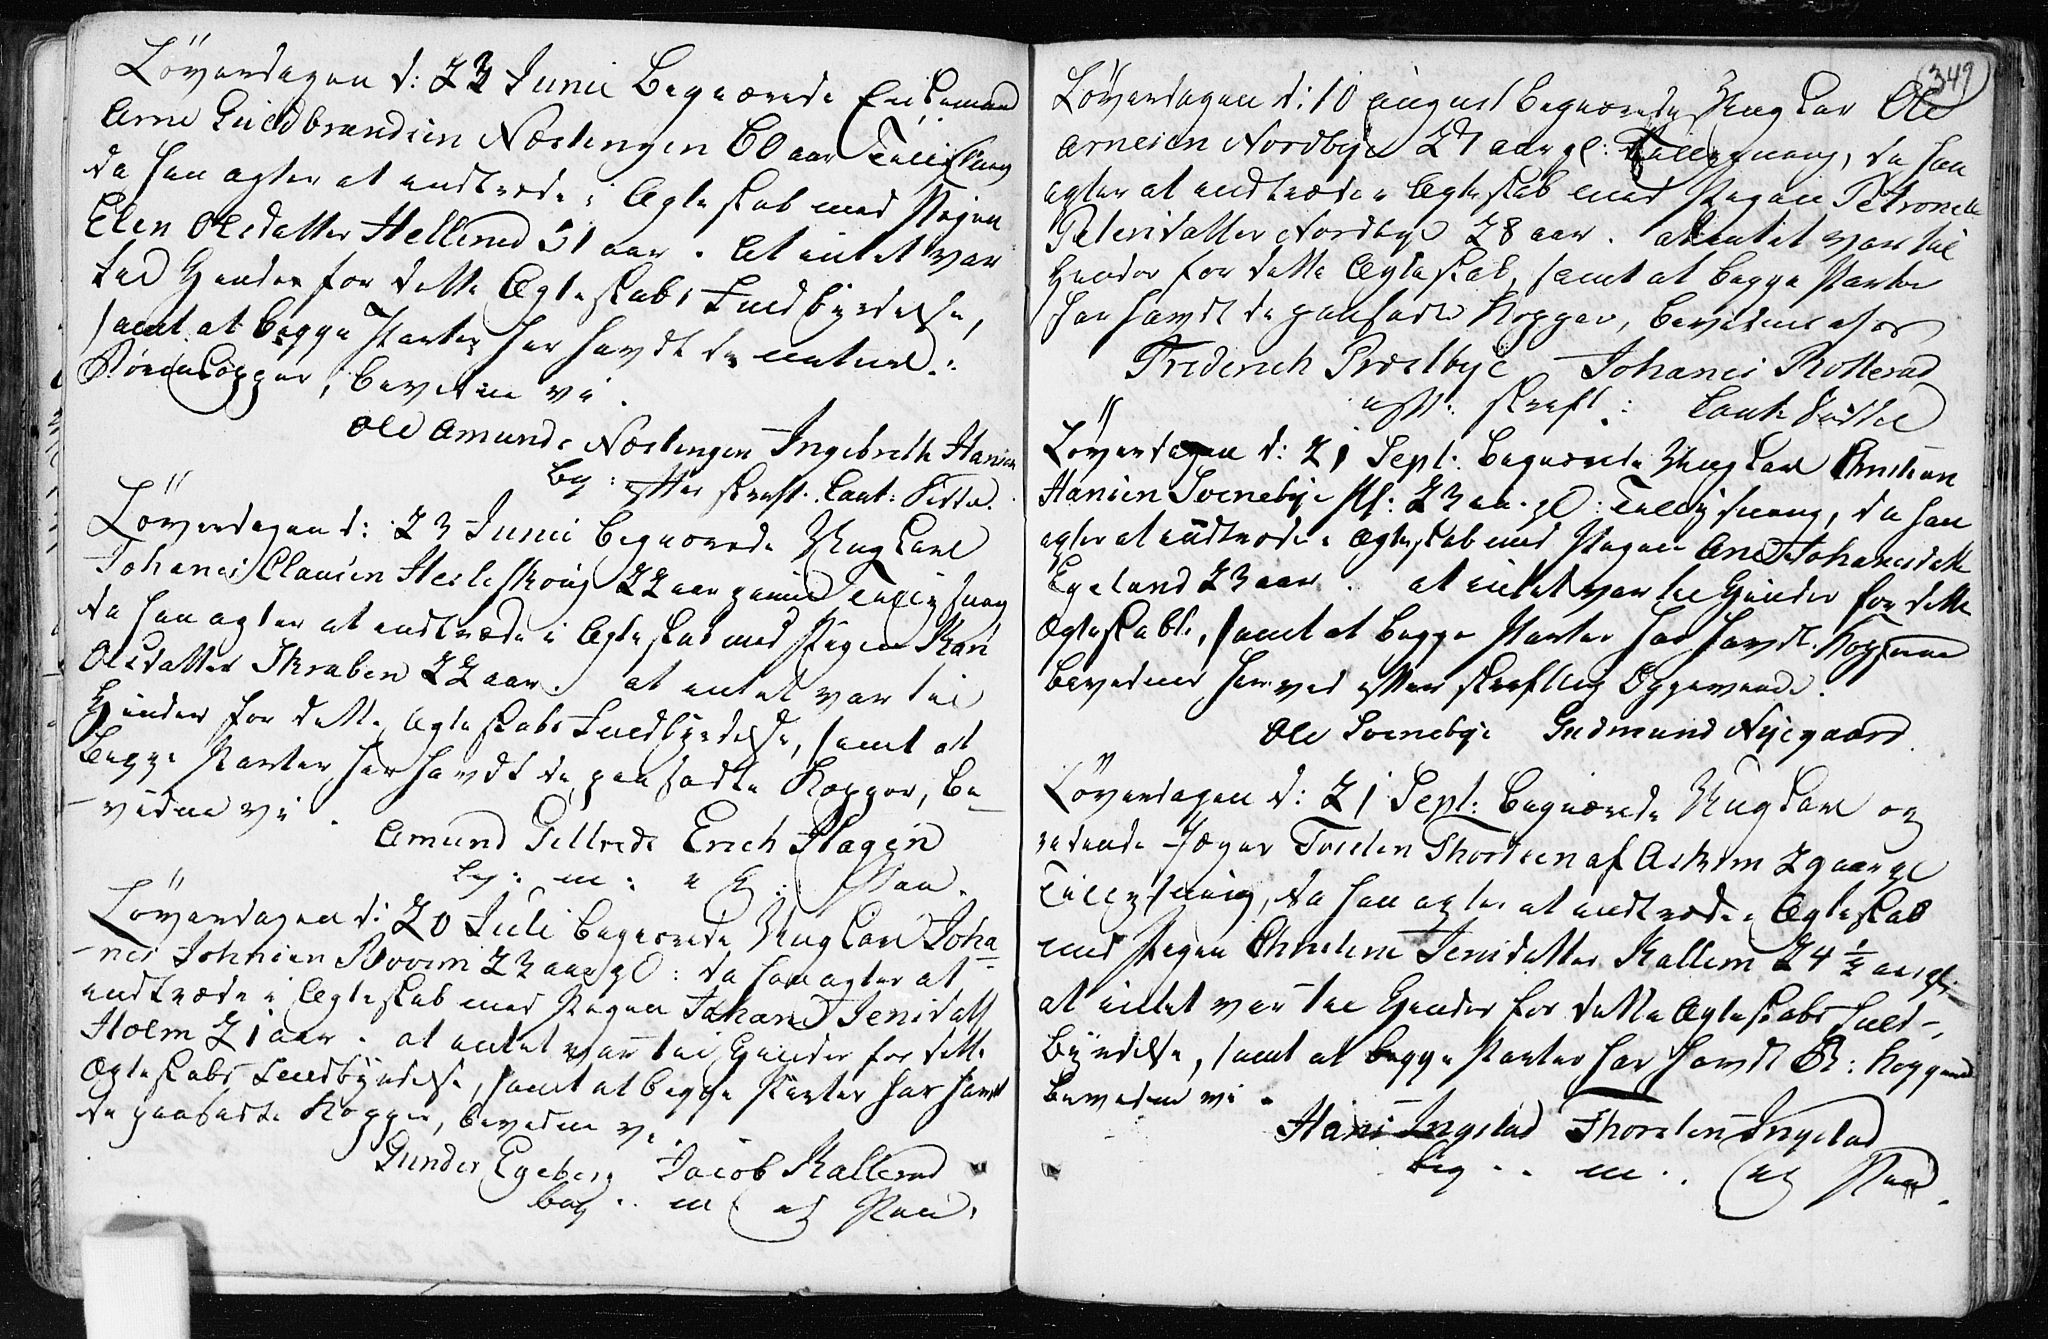 Løverdagen d: 23 Junii begierede Enkemand
Arne Guldbrandsen Næstengen 60 aar Tillysning
da han agter at indtræde i Ægteskab med Pigen
Elen Olsdatter Hellerud 51 aar. At intet var
til Hinder for dette Ægteskabs Fuldbyrdelse,
samt at begge Parter har havdt de naturl:
Børnekopper, bevidne vi.
Ole Amunds: Næstengen Ingebreth Hansen
beg: efter skreft.
Løverdagen d: 23 Junii begierede Ungkarl
Johanes Clausen Heeleskoug 22 aar gamel Tillysning
da han agter at indtræde i Ægteskab med Pigen Kari
Olsdatter Skraben 22 aar. at intet var til
Hinder for dette Ægteskabs Fuldbyrdelse, samt at
begge Parter har havdt de paasadte Kopper, be-
vidne vi.
Amund Erich Hagen
beg: m: Pen.
Løverdagen d: 20 Juli begierede Ungkarl Joha-
-nes Johnsen 23 aar gl: da han agter at
indtræde i Ægteskab med Pigen Johane Jensdatt
Holm 21 aar. at intet var til Hinder for dette
Ægteskabs Fuldbyrdelse, samt at begge Parter har havdt
de paasadte Kopper, bevidne vi.
Gunder Egeberg Jacob Kallerud
beg.. m Pen.
349
Løverdagen d: 10 August begierede Ungkar Ole
Arnesen Nordbye 27 aar gl: Tillysning, da han
agter at indtræde i Ægteskab med Pigen Petronelle
Petersdatter Nordbye 28 aar. at intet var til
Hinder for dette Ægteskab, samt at begge Parter
har havdt de paasadte Kopper, bevidnes af os
Frederich Præstbye Johanes
eft: skreft:
Løverdagen d: 21 Sept: begierede Ungkarl Christian
Hansen Svenebye 23 aar gl: Tillysning, da han
agter at indtræde i Ægteskab med Pigen Ane Johanesdatte
Egeland 23 aar. at intet var til Hinder for dette
Ægteskabs, samt at begge Parter har havdt Kopperne
bevidnes herved efter skreftlig Opgivende.
Ole Svenebye Gudmund Nygaard
Løverdagen d: 21 Sept: begierede Ungkarl og
ridende Jæger Torsten Thorsteen af Askim 29 aar gl
Tillysning, da han agter at indtræde i Ægteskab
med Pigen Christine Jensdatter Kallem 24 ½ aar gl:
at intet var til Hinder for dette Ægteskabs Fuld-
byrdelse, samt at begge Parter har havdt B: Kopperne
bevidne vi.
Hans Ingstad Thorsten Ingstad
beg.. m. Pen.